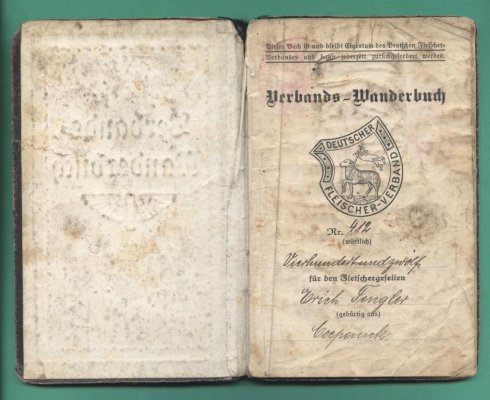 Dieses Buch ist und bleibt Eigentum des Deutschen Fleischer-
Verbandes und kann jederzeit zurückgefordert werden.
Verbands-Wanderbuch
DEUTSCHER
FLEISCHER-VERBAND
Nr. 412
(wörtlich)
Vierhundertundzwölf
für den Fleischergesellen
Erich Fengler
(gebürtig aus)
Coepenick